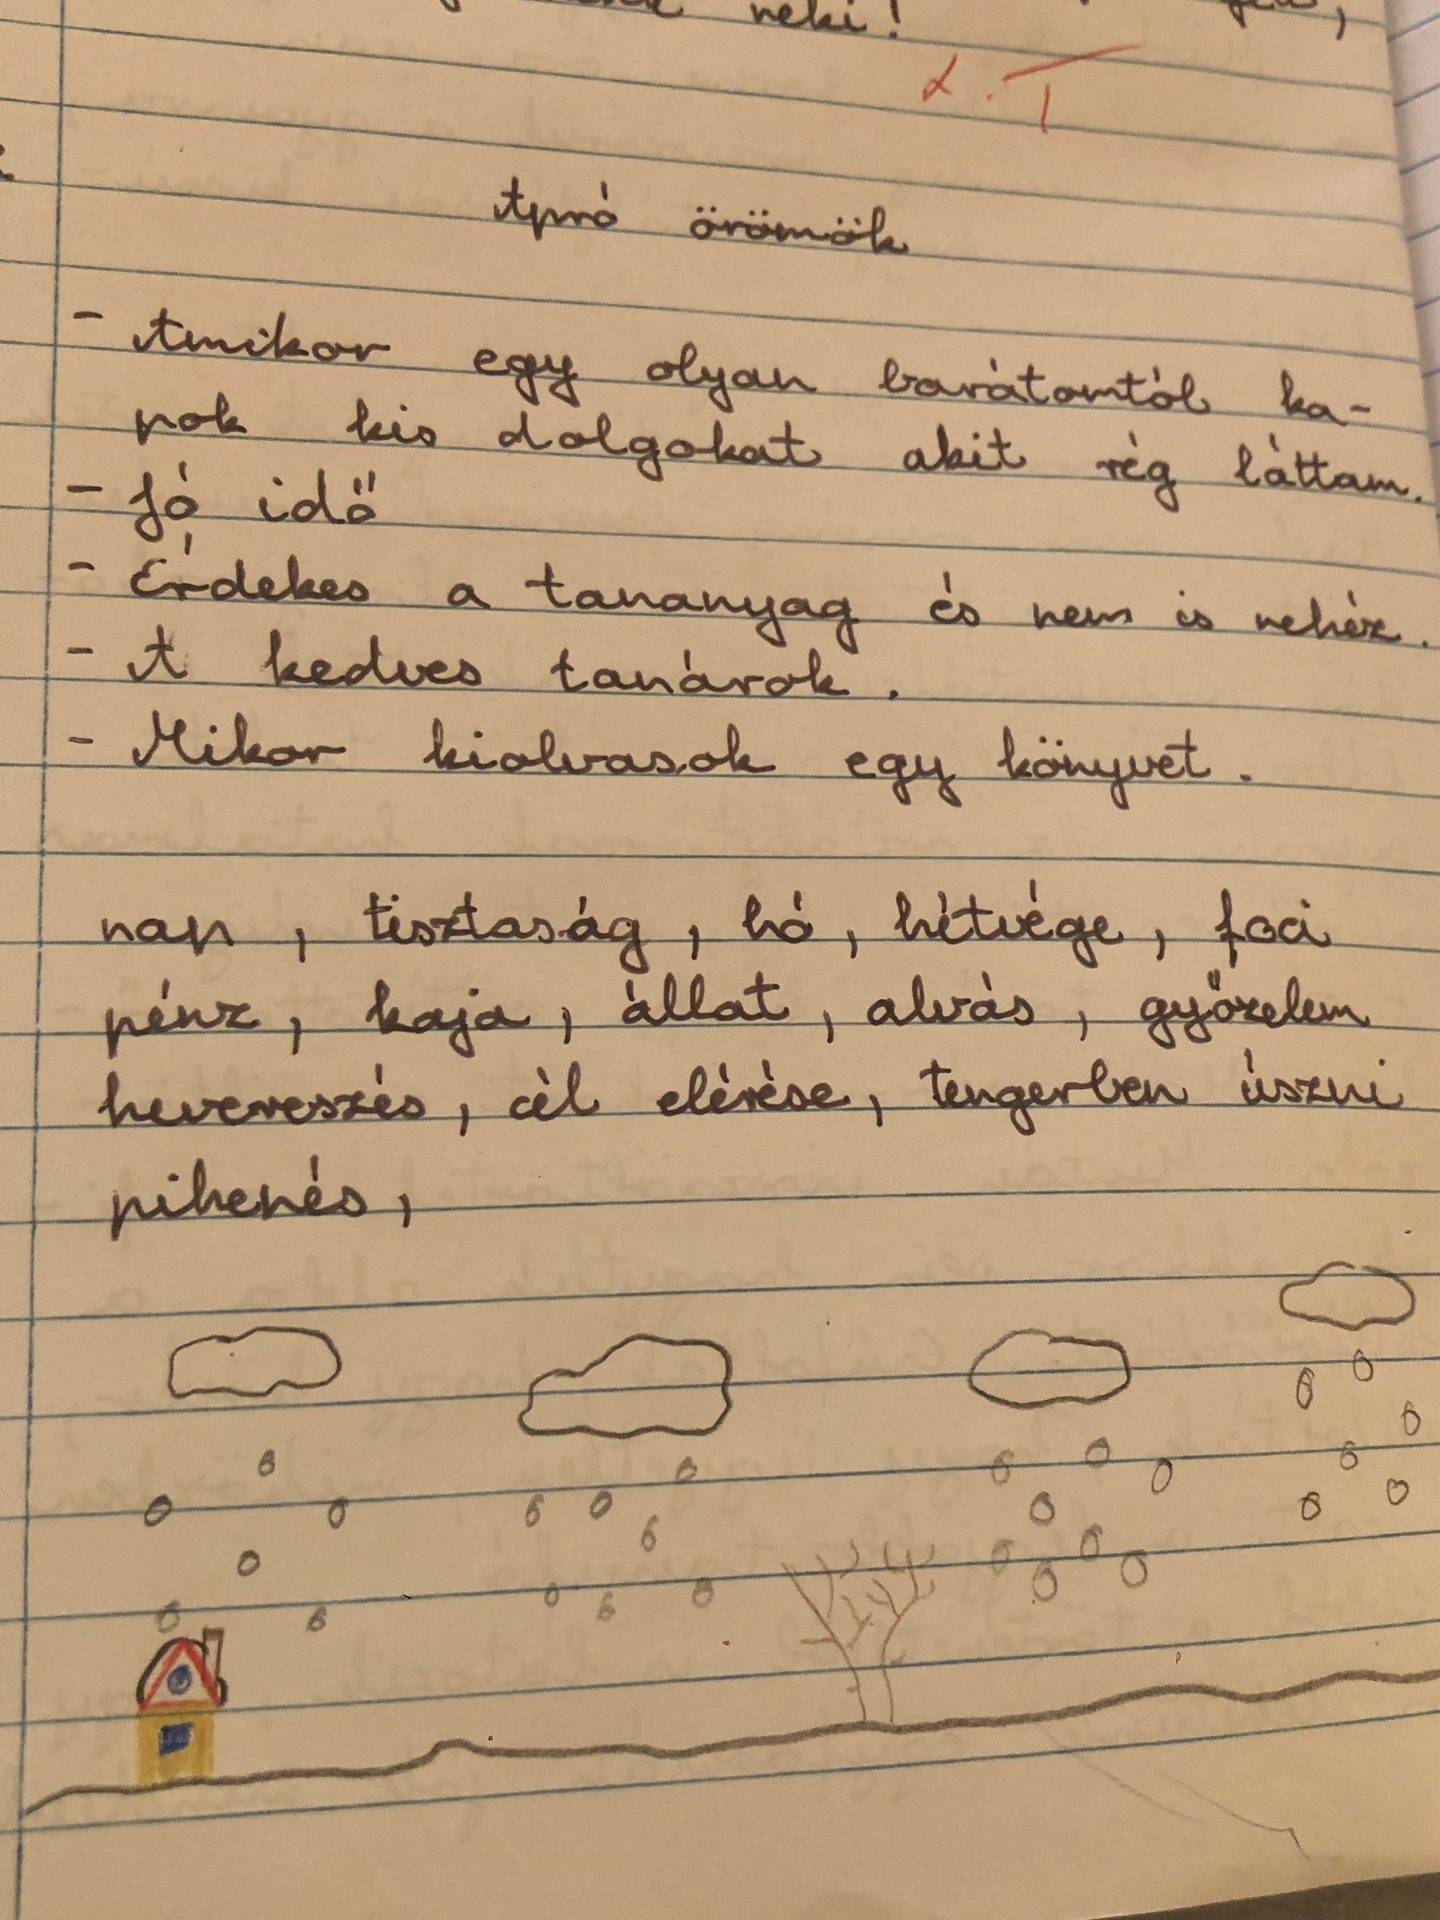 neki!
Apró örömök
- Amikor egy olyan barátomtól ka-
pok kis dolgokat akit rég láttam.
- Jó idő
- Érdekes a tananyag és nem is nehéz.
- A kedves tanárok.
- Mikor kiolvasok egy könyvet.
nap, tisztaság, hó, hétvége, foci
pénz, kaja, állat, alvás, győzelem
heverészés, cél elérése, tengerben úszni
pihenés,